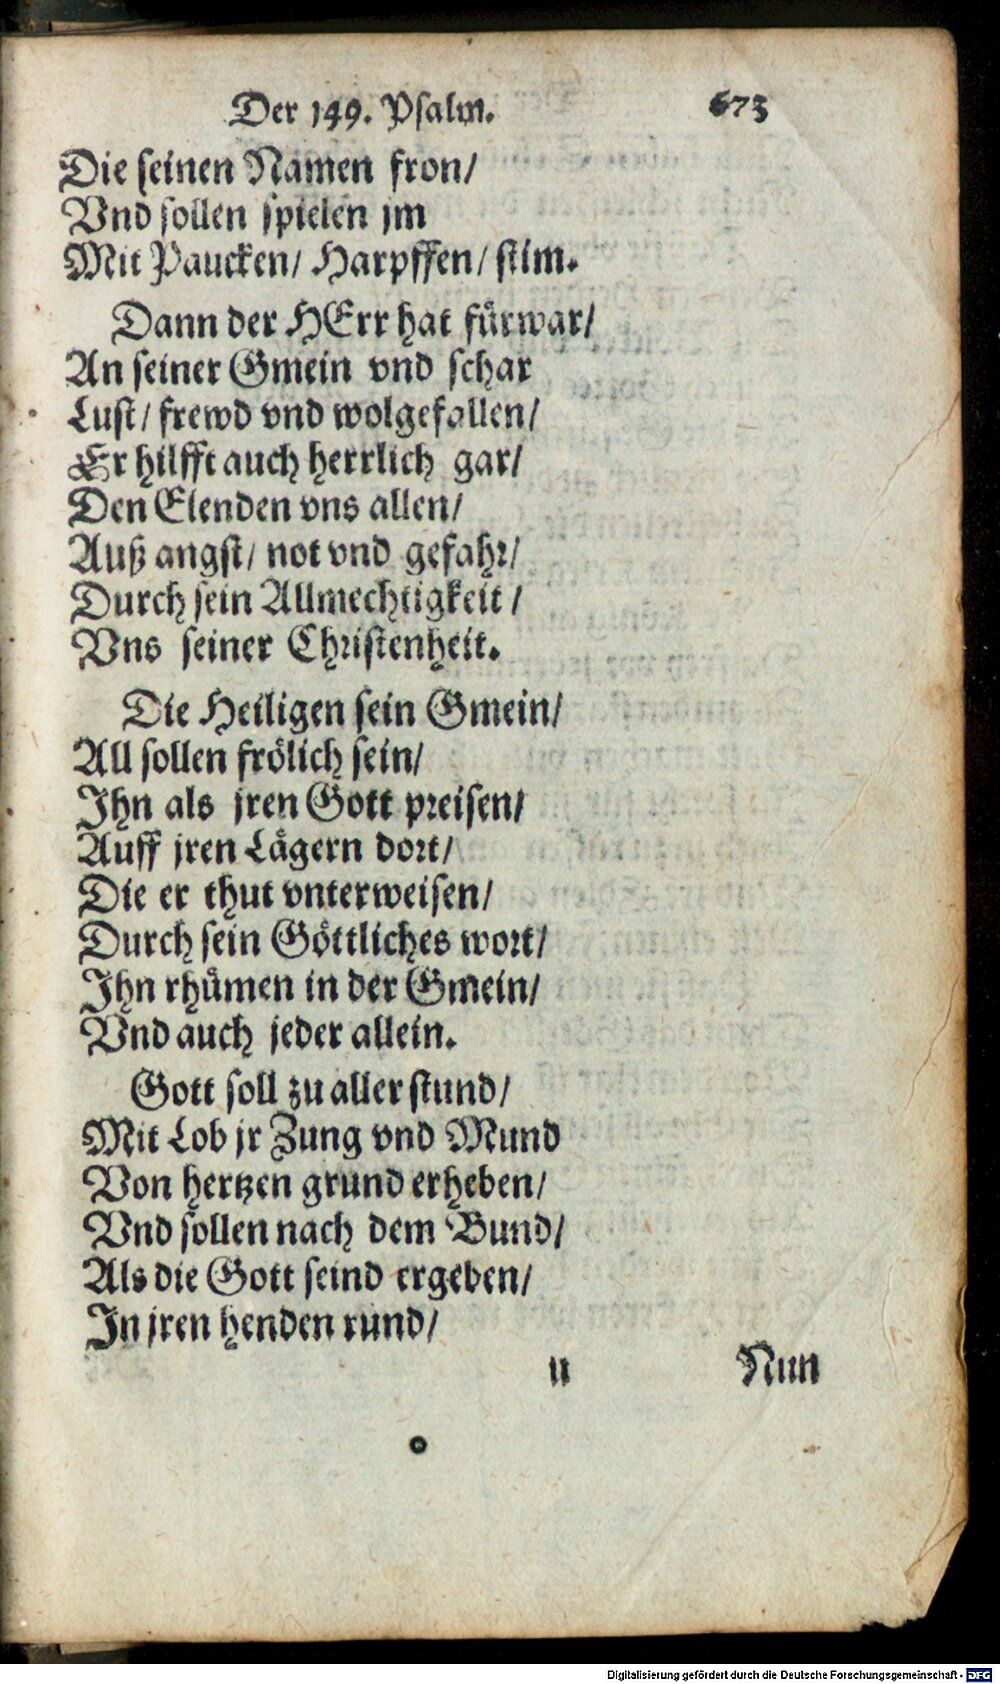 Der 149. Psalm. 673
Die seinen Namen fron/
Vnd sollen spielen jm
Mit Paucken/ Harpffen/ stim.
Dann der HErr hat fürwar/
An seiner Gmein vnd schar
Lust/ frewd vnd wolgefallen/
Er hilfft auch herrlich gar/
Den Elenden vns allen/
Auß angst/ not vnd gefahr/
Durch sein Allmechtigkeit/
Vns seiner Christenheit.
Die Heiligen sein Gmein/
All sollen frölich sein/
Ihn als jren Gott preisen/
Auff jren Lägern dort/
Die er thut vnterweisen/
Durch sein Göttliches wort/
Ihn rhümen in der Gmein/
Vnd auch jeder allein.
Gott soll zu aller stund/
Mit Lob jr Zung vnd Mund
Von hertzen grund erheben/
Vnd sollen nach dem Bund/
Als die Gott seind ergeben/
In jren henden rund/
u Nun
Digitalisierung gefördert durch die Deutsche Forschungsgemeinschaft - DFG